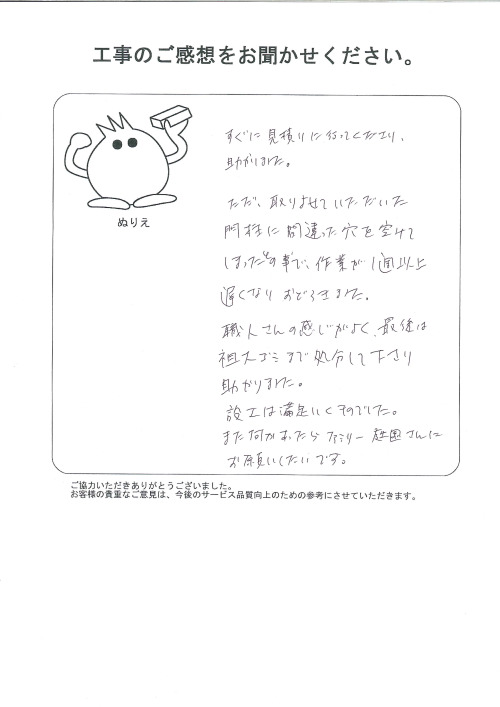 工事のご感想をお聞かせください。
ぬりえ
すぐに見積りに行ってくださり、
助かりました。
ただ、取りよせていただいた
門柱に間違った穴を空けて
しまったとの事で、作業が1週間以上
遅くなりおどろきました。
職人さんの感じがよく、最後は
粗大ゴミまで処分して下さり
助かりました。
設工は満足いくものでした。
また何かあったらファミリー庭園さんに
お願いしたいです。
ご協力いただきありがとうございました。
お客様の貴重なご意見は、今後のサービス品質向上のための参考にさせていただきます。